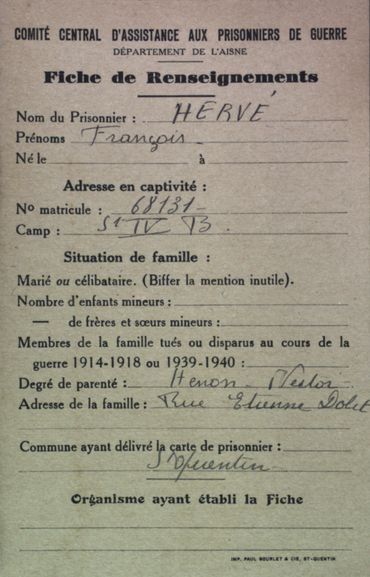 COMITÉ CENTRAL D'ASSISTANCE AUX PRISONNIERS DE GUERRE
DÉPARTEMENT DE L'AISNE
Fiche de Renseignements
Nom du Prisonnier : HERVÉ
Prénoms François
Né le à
Adresse en captivité :
No matricule : 68131
Camp : St IV B.
Situation de famille :
Marié ou célibataire. (Biffer la mention inutile).
Nombre d'enfants mineurs :
— de frères et sœurs mineurs :
Membres de la famille tués ou disparus au cours de la
guerre 1914-1918 ou 1939-1940 :
Degré de parenté : Henon - Nestor
Adresse de la famille : Rue Etienne Dolet
Commune ayant délivré la carte de prisonnier :
St Quentin
Organisme ayant établi la Fiche
IMP. PAUL BOURLET & CIE, ST-QUENTIN